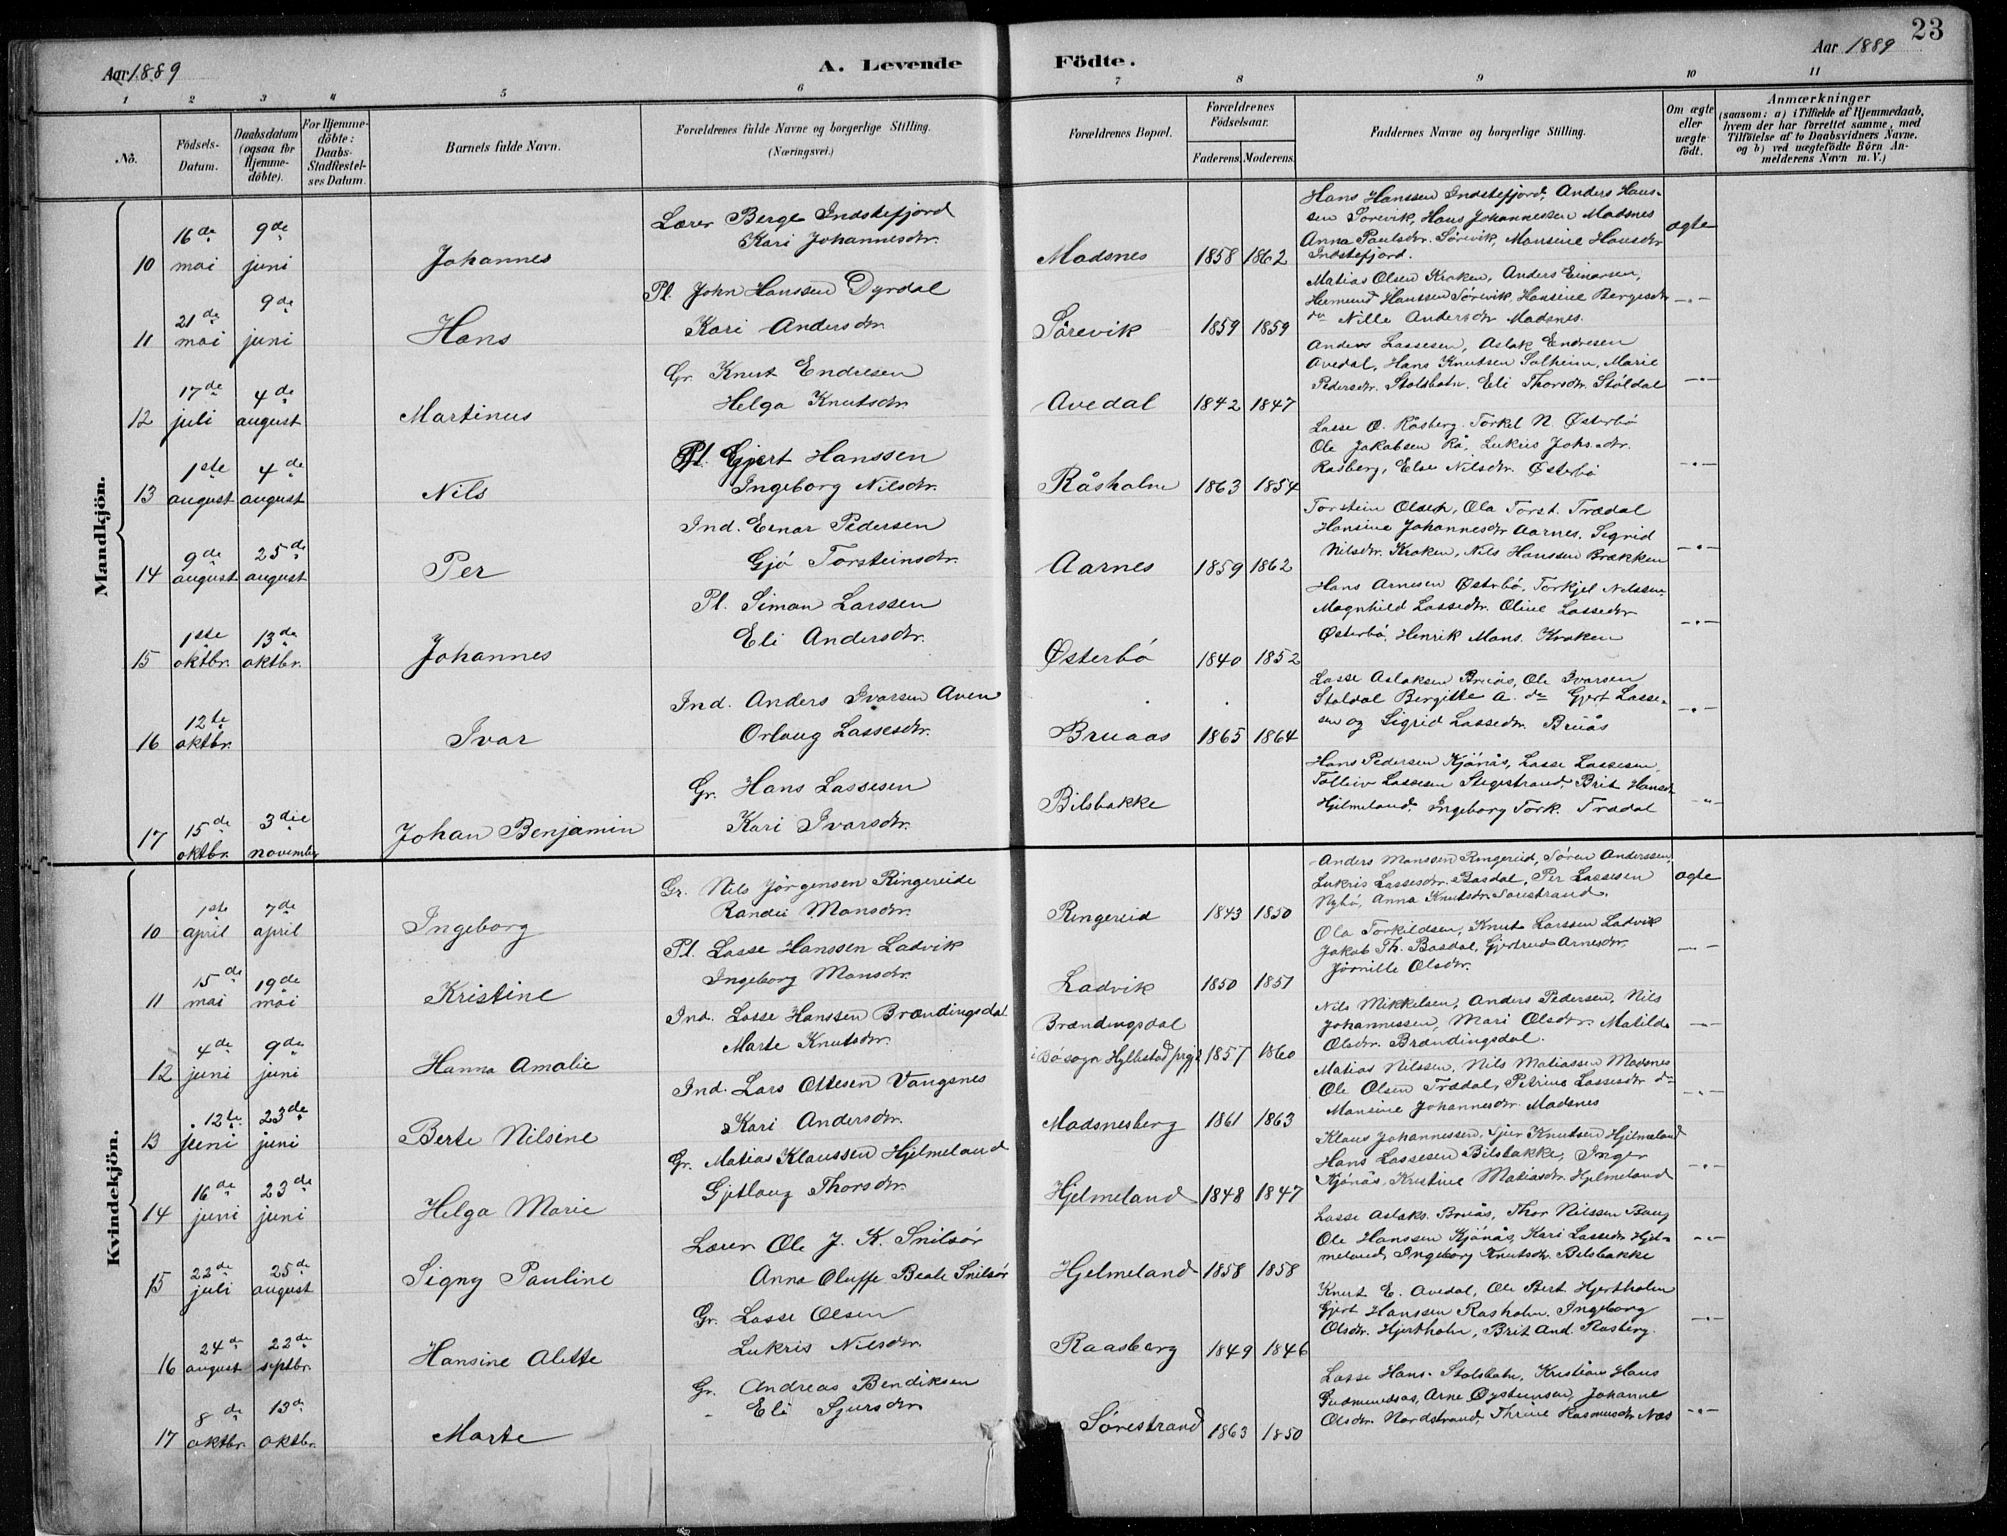 23
Aar 1889
A. Levende
Födte.
Aar 1889
1 2 3 4 5 6 7 8 9 10 11
No.
Födsels-Datum.
Daabsdatum (ogsaa for Hjemme-döbte).
For Hjemme-döbte: Daabs-Stadfæstel-ses Datum.
Barnets fulde Navn.
Forældrenes fulde Navne og borgerlige Stilling. (Næringsvei.)
Forældrenes Bopæl.
Forældrenes Födselsaar.
Faderens. Moderens.
Faddernes Navne og borgerlige Stilling.
Om ægte eller uægte födt.
Anmærkninger
(saasom: a) i Tilfælde af Hjemmedaab, hvem der har forrettet samme, med Tilföielse af to Daabsvidners Navne. og b) ved uægtefödte Börn An-melderens Navn m. V.)
Mandkjön.
10 16de mai 9de juni Johannes
Lærer Berge Indstefjord
Kari Johannesdtr.
Madsnes 1858 1862
Hans Hanssen Indstefjord, Anders Hans-
sen Sörevik, Hans Johannessen Madsnes
Anna Paulsdtr. Sörevik, Mansine Hansdtr
Indstefjord.
ægte
11 21de mai 9de juni Hans
Pl. John Hanssen Dyrdal
Kari Andersdtr.
Sörevik 1859 1859
Matias Olsen Kraken, Anders Einarsen,
Hermund Hanssen Sörevik, Hansine Bergesdtr
do Nille Andersdtr Madsnes.
—"—
12 17de juli 4de august Martinus
Gr. Knut Endresen
Helga Knutsdtr.
Avedal 1842 1847
Anders Lassesen, Aslak Endresen
Avedal, Hans Knutsen Solheim, Marie
Pedersdtr. Stolsbotn. Eli Thorsdtr. Stöldal
—"—
13 1ste august 4de august Nils
Pl. Gjert Hanssen
Ingeborg Nilsdtr.
Råsholm 1863 1854
Lasse O. Råsberg. Torkel N. Østerbö
Ole Jakobsen Rå, Lukris Johs.dtr.
Rasberg, Else Nilsdtr. Österbö
—"—
14 9de august 25de august Per
Ind. Einar Pedersen
Gjö Torsteinsdtr.
Aarnes 1859 1862
Torstein Olsen, Ola Torst. Trædal
Hansine Johannesdtr Aarnes, Sigrid
Nilsdtr. Kraken, Nils Hanssen Brækken
—"—
15 1ste oktbr. 13de oktbr. Johannes
Pl. Simon Larssen
Eli Andersdtr.
Østerbö 1840 1852
Hans Arnesen Østerbö, Torkjel Nilssen,
Magnhild Lassedtr. Oline Lassedtr
Østerbö, Henrik Mons. Kraken
—"—
16 12te oktbr. Ivar
Ind. Anders Ivarsen Aven
Orlaug Lassesdtr.
Bruaas 1865 1864
Lasse Aslaksen Bruås, Ole Ivarsen
Staldal Bergitte A. do Gjert Lasse-
sen og Sigrid Lassedtr. Bruås
—"—
17 15de oktbr. 3die november Johan Benjamin
Gr. Hans Lassesen
Kari Ivarsdtr.
Bilsbakke
Hans Pedersen Kjönås, Lasse Lassesen,
Tolleiv Lassesen Stegestrand, Brit Hansdtr
Hjelmeland, Ingeborg Tork. Trædal
—"—
Kvindekjön.
10 1ste april 7de april Ingeborg
Gr. Nils Jörgensen Ringereide
Randi Mansdtr.
Ringereid 1843 1850
Anders Monssen Ringereid, Sören Anderssen,
Lukris Lassesdtr. Basdal, Per Lassesen
Nybö, Anna Knutsdtr Sörestrand.
ægte
11 15de mai 19de mai Kristine
Pl. Lasse Hanssen Ladvik
Ingeborg Monsdtr.
Ladvik 1850 1851
Ola Torkildsen, Knut Larssen Ladvik
Jakob Th. Basdal, Gjertrud Arnesdtr.
Jörnille Olsdtr.
—"—
12 4de juni 9de juni Hanna Amalie
Ind. Lasse Hanssen Brændingsdal
Marte Knutsdtr.
Brændingsdal
i Bö sogn Hyllestad prgj. 1857 1860
Nils Mikkelsen, Anders Pedersen, Nils
Johannessen, Mari Olsdtr. Matilde
Olsdtr. Brændingsdal.
—"—
13 12te juni 23de juni Berte Nilsine
Ind. Lars Ottesen Vangsnes
Kari Andersdtr.
Madsnesberg 1861 1863
Matias Nilssen, Nils Matiassen Madsnes
Ole Olsen Trædal, Petrine Lassesdtr do
Mansine Johannesdtr. Madsnes
—"—
14 16de juni 23de juni Helga Marie
Gr. Matias Klaussen Hjelmeland
Gjtlaug Thorsdtr.
Hjelmeland 1848 1847
Klaus Johannessen, Sjur Knutsen Hjelmeland
Hans Lassesen Bilsbakke, Inger
Kjönås, Kristine Matiasdtr. Hjelmeland
—"—
15 22de juli 25de august Signy Pauline
Lærer Ole J. K. Snilsör
Anna Oluffe Beate Snilsör
Hjelmeland 1858 1858
Lasse Aslaks. Bruås, Thor Nilssen Baug
Ole Hanssen Kjönås, Kari Lassedtr. Hjel-
meland, Ingeborg Knutsdtr. Bilsbakke
—"—
16 24de august 22de septbr. Hansine Alette
Gr. Lasse Olsen
Lukris Nilsdtr.
Raasberg 1849 1846
Knut E. Avedal, Ole Bert. Hjertholm
Gjert Hanssen Rasholm. Ingeborg
Olsdtr. Hjertholm, Brit And. Rasberg.
—"—
17 8de oktbr. 13de oktbr. Marte
Gr. Andreas Bendiksen
Eli Sjursdtr
Sörestrand 1863 1850
Lasse Hans. Stolsbotn, Kristian Hans
Gudmundsøs, Arne Öysteinsen, Johanne
Olsdtr. Nordstrand, Thrine Rasmusdtr. Nes
—"—